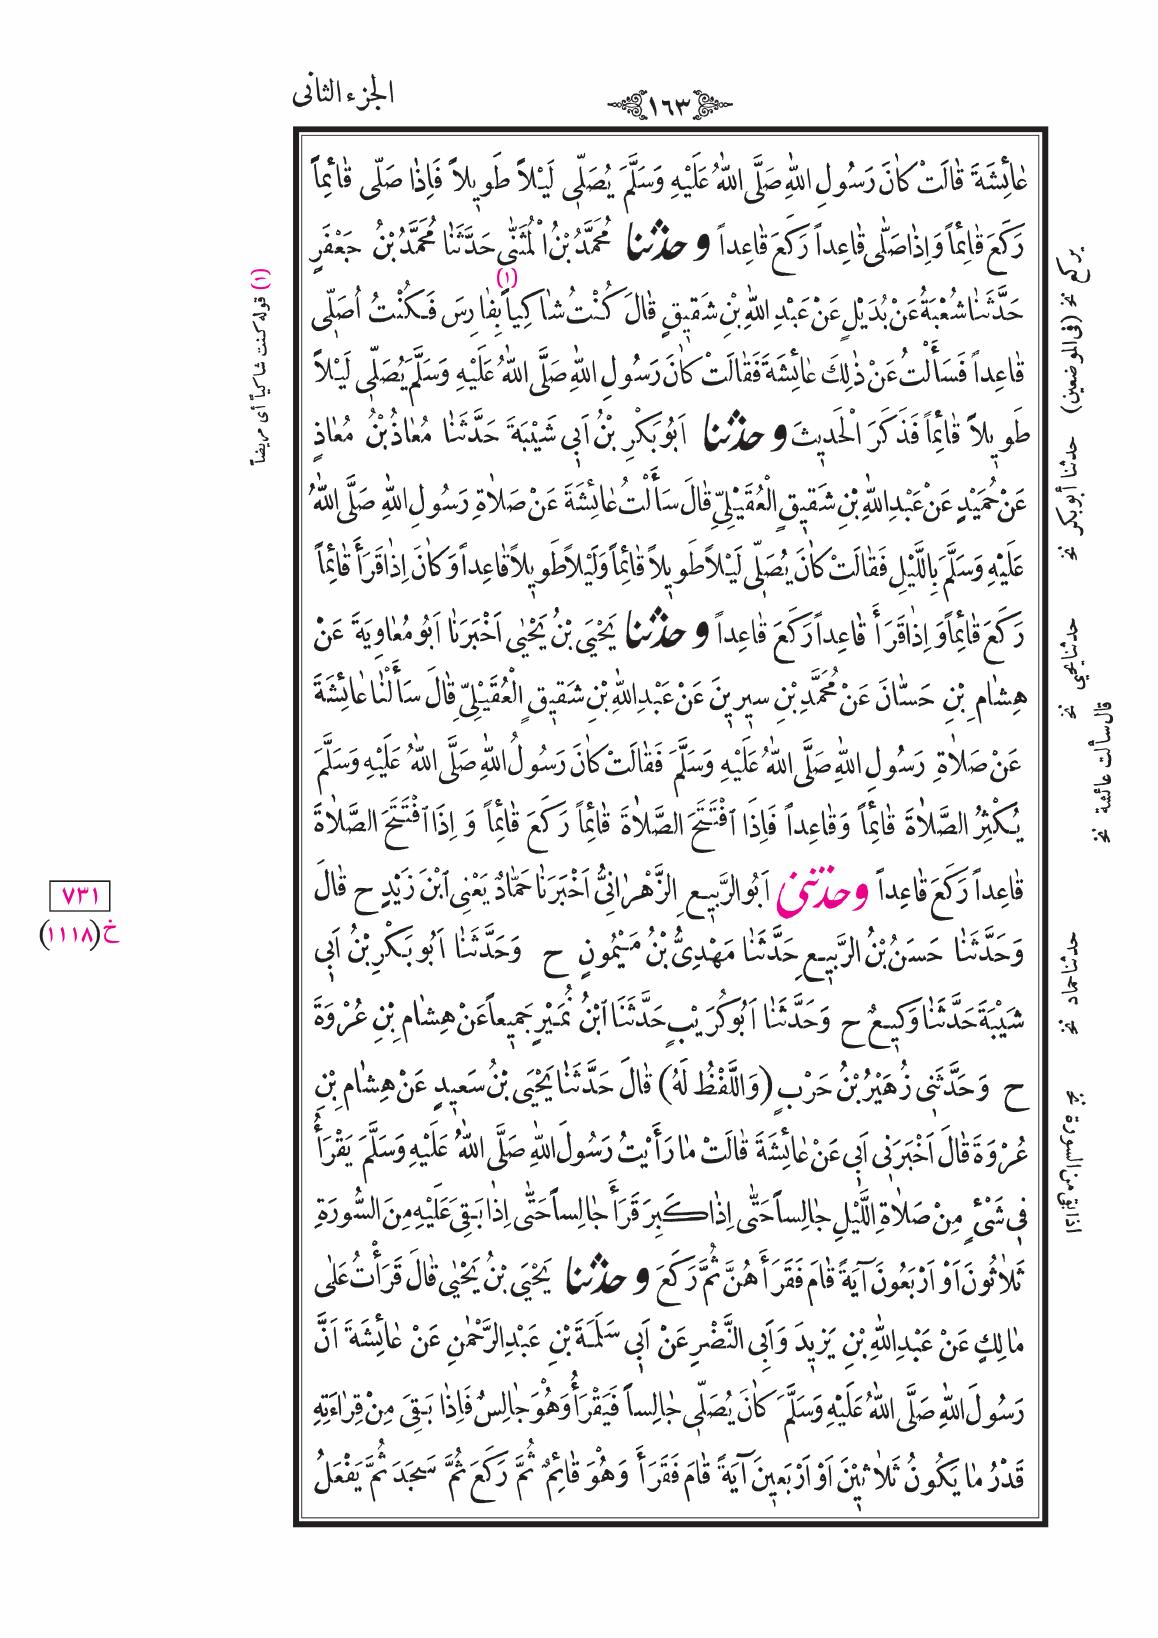 الجزء الثانى
١٦٣
عَائِشَةَ قَالَتْ كَانَ رَسُولِ اللهِ صَلَّى اللهُ عَلَيْهِ وَسَلَّمَ يُصَلِّى لَيْلاً طَوِيلاً فَإِذَا صَلَّى قَائِماً
رَكَعَ قَائِماً وَإِذَا صَلَّى قَاعِداً رَكَعَ قَاعِداً وحَدَّثَنَا مُحَمَّدُ بْنُ الْمُثَنَّى حَدَّثَنَا مُحَمَّدُ بْنُ جَعْفَرٍ
حَدَّثَنَا شُعْبَةُ عَنْ بُدَيْلٍ عَنْ عَبْدِ اللهِ بْنِ شَقِيقٍ قَالَ كُنْتُ شَاكِياً (١) بِفَارِسَ فَكُنْتُ اُصَلِّى
قَاعِداً فَسَأَلْتُ عَنْ ذٰلِكَ عَائِشَةَ فَقَالَتْ كَانَ رَسُولِ اللهِ صَلَّى اللهُ عَلَيْهِ وَسَلَّمَ يُصَلِّى لَيْلاً
طَوِيلاً قَائِماً فَذَكَرَ الْحَدِيثَ وحَدَّثَنَا اَبُو بَكْرِ بْنُ اَبِى شَيْبَةَ حَدَّثَنَا مُعَاذُ بْنُ مُعَاذٍ
عَنْ حُمَيْدٍ عَنْ عَبْدِ اللهِ بْنِ شَقِيقٍ الْعُقَيْلِىِّ قَالَ سَأَلْتُ عَائِشَةَ عَنْ صَلَاةِ رَسُولِ اللهِ صَلَّى اللهُ
عَلَيْهِ وَسَلَّمَ بِاللَّيْلِ فَقَالَتْ كَانَ يُصَلِّى لَيْلاً طَوِيلاً قَائِماً وَلَيْلاً طَوِيلاً قَاعِداً وَكَانَ اِذَا قَرَأَ قَائِماً
رَكَعَ قَائِماً وَاِذَا قَرَأَ قَاعِداً رَكَعَ قَاعِداً وحَدَّثَنَا يَحْيَى بْنُ يَحْيٰى اَخْبَرَنَا اَبُو مُعَاوِيَةَ عَنْ
هِشَامِ بْنِ حَسَّانَ عَنْ مُحَمَّدِ بْنِ سِيرِينَ عَنْ عَبْدِ اللهِ بْنِ شَقِيقٍ الْعُقَيْلِىِّ قَالَ سَأَلْنَا عَائِشَةَ
عَنْ صَلَاةِ رَسُولِ اللهِ صَلَّى اللهُ عَلَيْهِ وَسَلَّمَ فَقَالَتْ كَانَ رَسُولُ اللهِ صَلَّى اللهُ عَلَيْهِ وَسَلَّمَ
يُكْثِرُ الصَّلَاةَ قَائِماً وَقَاعِداً فَإِذَا افْتَتَحَ الصَّلَاةَ قَائِماً رَكَعَ قَائِماً وَ اِذَا افْتَتَحَ الصَّلَاةَ
قَاعِداً رَكَعَ قَاعِداً وحَدَّثَنِى اَبُو الرَّبِيعِ الزَّهْرَانِىُّ اَخْبَرَنَا حَمَّادٌ يَعْنِى ابْنَ زَيْدٍ ح قَالَ
وَحَدَّثَنَا حَسَنُ بْنُ الرَّبِيعِ حَدَّثَنَا مَهْدِىُّ بْنُ مَيْمُونٍ ح وَحَدَّثَنَا اَبُو بَكْرِ بْنُ اَبِى
شَيْبَةَ حَدَّثَنَا وَكِيعٌ ح وَحَدَّثَنَا اَبُو كُرَيْبٍ حَدَّثَنَا ابْنُ نُمَيْرٍ جَمِيعاً عَنْ هِشَامِ بْنِ عُرْوَةَ
ح وَحَدَّثَنِى زُهَيْرُ بْنُ حَرْبٍ (وَاللَّفْظُ لَهُ) قَالَ حَدَّثَنَا يَحْيَى بْنُ سَعِيدٍ عَنْ هِشَامِ بْنِ
عُرْوَةَ قَالَ اَخْبَرَنِى اَبِى عَنْ عَائِشَةَ قَالَتْ مَا رَأَيْتُ رَسُولَ اللهِ صَلَّى اللهُ عَلَيْهِ وَسَلَّمَ يَقْرَأُ
فِى شَىْءٍ مِنْ صَلَاةِ اللَّيْلِ جَالِساً حَتّٰى اِذَا كَبِرَ قَرَأَ جَالِساً حَتّٰى اِذَا بَقِىَ عَلَيْهِ مِنَ السُّورَةِ
ثَلَاثُونَ اَوْ اَرْبَعُونَ آيَةً قَامَ فَقَرَأَ هُنَّ ثُمَّ رَكَعَ وحَدَّثَنَا يَحْيَى بْنُ يَحْيٰى قَالَ قَرَأْتُ عَلىٰ
مَالِكٍ عَنْ عَبْدِ اللهِ بْنِ يَزِيدَ وَاَبِى النَّضْرِ عَنْ اَبِى سَلَمَةَ بْنِ عَبْدِ الرَّحْمٰنِ عَنْ عَائِشَةَ اَنَّ
رَسُولَ اللهِ صَلَّى اللهُ عَلَيْهِ وَسَلَّمَ كَانَ يُصَلِّى جَالِساً فَيَقْرَأُ وَهُوَ جَالِسٌ فَاِذَا بَقِىَ مِنْ قِرَاءَتِهِ
قَدْرُ مَا يَكُونُ ثَلَاثِينَ اَوْ اَرْبَعِينَ آيَةً قَامَ فَقَرَأَ وَهُوَ قَائِمٌ ثُمَّ رَكَعَ ثُمَّ سَجَدَ ثُمَّ يَفْعَلُ
يركع نخ (فى الموضعين)
حدثنا أبو بكر نخ
حدثنا يحيى نخ
قال سألت عائشة نخ
حدثنا حماد نخ
اذا بقى من السورة نخ
(١) قوله كنت شاكياً أى مريضاً
٧٣١
خ (١١١٨)